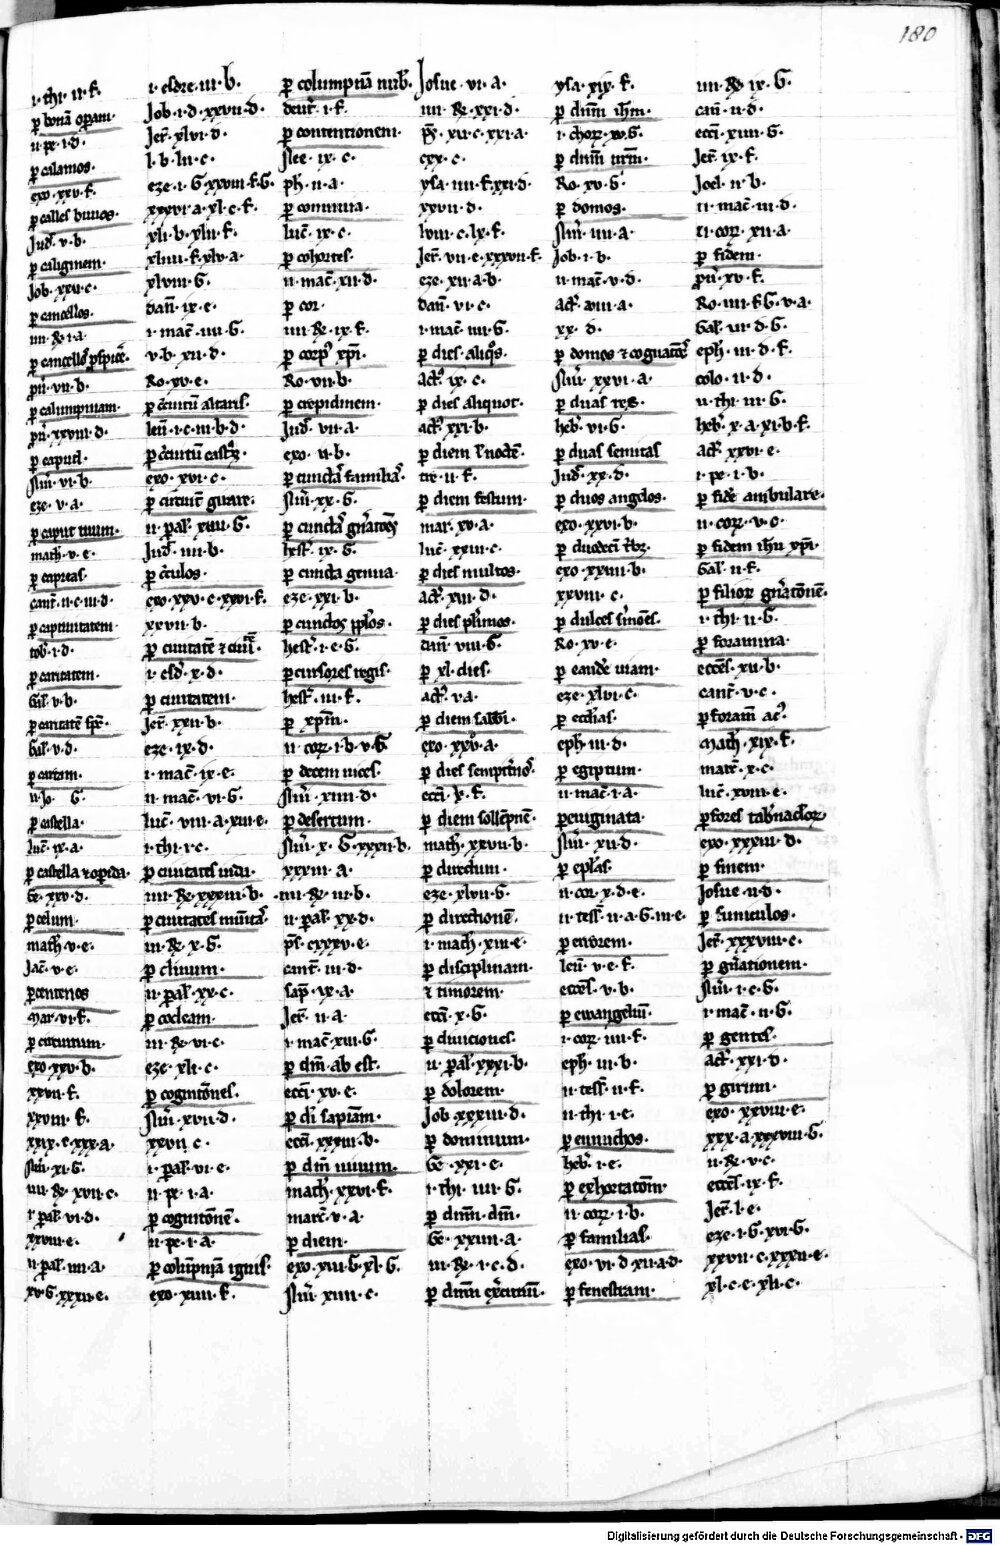 180
i · thi · ii · f ·
ꝑ bonā oꝑam ·
ii · pe · i · d ·
ꝑ calamos ·
exo · xxv · f ·
ꝑ calles
Jud̄ · v · b ·
ꝑ caliginem ·
Job · xxii · c ·
ꝑ cancellos ·
iiii · Rͤ · i · a ·
ꝑ cancellos
pͮū · vii · b ·
ꝑ calumpniam ·
pͮū · xxviii · d ·
ꝑ caput ·
Nūi · vi · b ·
eze · v · a ·
ꝑ caput tuum ·
math · v · e ·
ꝑ capreas ·
cant̄ · ii · c · iii · d ·
ꝑ captiuitatem ·
tob̄ · i · d ·
ꝑ caritatem ·
Gal̄ · v · b ·
ꝑ caritatē
Gal̄ · v · d ·
ꝑ cartam ·
ii · Jo · G ·
ꝑ castella ·
luc̄ · ix · a ·
ꝑ castella ⁊ opida ·
Ge · xxv · d ·
ꝑ celum ·
math · v · e ·
Jac̄ · v · c ·
ꝑ centenos
Mar · vi · f ·
ꝑ circuitum ·
exo · xxv · b ·
xxvii · f ·
xxviii · f ·
xxix · e · xxx · a ·
Nūi · xi · G ·
iiii · Rͤ · xvii · c ·
i · pal̄ · vi · d ·
xxviii · e ·
ii · pal̄ · iiii · a ·
xv · G · xxxii · e ·
i · esdre · iii · b ·
Job · i · d · xxvii · d ·
Jer̄ · xlvi · d ·
l · b · lii · c ·
eze · i · G · xxviii · f · G ·
xxxvi · a · xl · c · f ·
xli · b · xlii · f ·
xliii · f · xlv · a ·
xlviii · G ·
dan̄ · ix · e ·
i · mac̄ · iiii · G ·
v · b · xii · d ·
Ro · xv · e ·
ꝑ circuitū altaris ·
leui · i · c · iii · b · d ·
ꝑ circuitū castꝝ ·
exo · xvi · c ·
ꝑ circuit̄ ·
ii · pal̄ · xiiii · G ·
Jud̄ · iiii · b ·
ꝑ circulos ·
exo · xxv · e · xxvi · f ·
xxvii · b ·
ꝑ ciuitatē ⁊
i · esd̄ · x · d ·
ꝑ ciuitatem ·
Jer̄ · xxii · b ·
eze · ix · d ·
i · mac̄ · ix · e ·
ii · mac̄ · vi · G ·
luc̄ · viii · a · xiii · e ·
i · thi · i · c ·
ꝑ ciuitates iuda ·
iiii · Rͤ · xxxiii · b ·
ꝑ ciuitates
iii · Rͤ · x · G ·
ꝑ cliuum ·
ii · pal̄ · xx · c ·
ꝑ cocleam ·
iii · Rͤ · vi · c ·
eze · xli · c ·
ꝑ cognatōnes ·
Nūi · xvii · d ·
xxvii · c ·
i · pal̄ · vi · e ·
ii · pe · i · a ·
ꝑ cognitōnē ·
ii · pe · i · a ·
ꝑ colūpnā ignis ·
exo · xiiii · f ·
ꝑ columpnā nub̄ ·
deut̄ · i · f ·
ꝑ contentionem ·
Nee · ix · c ·
ph · ii · a ·
ꝑ conuiuia ·
luc̄ · ix · c ·
ꝑ cohortes ·
ii · mac̄ · xii · d ·
ꝑ cor ·
iiii · Rͤ · ix · f ·
ꝑ corpꝰ xp̄i ·
Ro · vii · b ·
ꝑ crepidinem ·
Jud̄ · vii · a ·
exo · ii · b ·
ꝑ cunctā familiā ·
Nūi · xx · G ·
ꝑ cunctas
hest̄ · ix · G ·
ꝑ cuncta genua ·
eze · xxi · b ·
ꝑ cunctos pplos ·
hest̄ · i · e · G ·
ꝑ cursores regis ·
hest̄ · iii · f ·
ꝑ xpm̄ ·
ii · coꝝ · i · b · v · G ·
ꝑ decem uices ·
Nūi · xiiii · d ·
ꝑ desertum ·
Nūi · x · G · xxxii · b ·
xxxiii · a ·
iiii · Rͤ · iii · b ·
ii · pal̄ · xx · d ·
ps̄ · cxxxv · e ·
cant̄ · iii · d ·
sap̄ · ix · a ·
Jer̄ · ii · a ·
i · mac̄ · xiii · G ·
ꝑ dm̄ ab est ·
ecc̄i · xv · c ·
ꝑ di sapiam̄ ·
ecc̄i · xxxiii · b ·
ꝑ dm̄ uiuum ·
math̄ · xxvi · f ·
marc̄ · v · a ·
ꝑ diem ·
exo · xiii · G · xl · G ·
Nūi · xiiii · c ·
Josue · vi · a ·
iiii · Rͤ · xxi · d ·
ps̄ · xii · c · xxi · a ·
cxx · c ·
ysa · iiii · f · xxi · d ·
xxvii · d ·
lviii · c · lx · f ·
Jer̄ · vii · e · xxxvii · f ·
eze · xii · a · b ·
dan̄ · vi · c ·
i · mac̄ · iiii · G ·
ꝑ dies aliqͦs ·
act̄ · ix · c ·
ꝑ dies aliquot ·
act̄ · xxi · b ·
ꝑ diem l̄ noctē ·
tre · ii · f ·
ꝑ diem festum ·
mar · xv · a ·
luc̄ · xxiii · c ·
ꝑ dies multos ·
act̄ · xiii · d ·
ꝑ dies pl̄imos ·
dan̄ · viii · G ·
ꝑ xl · dies ·
act̄ · v · a ·
ꝑ diem sabb̄i ·
exo · xxv · a ·
ꝑ dies
ecc̄i · x · f ·
ꝑ diem
math̄ · xxvii · b ·
ꝑ directum ·
eze · xlvii · G ·
ꝑ directionē ·
i · mach̄ · xiii · e ·
ꝑ disciplinam ·
⁊ timorem ·
ecc̄i · x · G ·
ꝑ diuiciones ·
ii · pal̄ · xxxi · b ·
ꝑ dolorem ·
Job · xxxiii · d ·
ꝑ dominum ·
Ge · xxi · e ·
i · thi · iiii · G ·
ꝑ dm̄m · dm̄ ·
Ge · xxiiii · a ·
iii · Rͤ · i · c · d ·
ꝑ dm̄m exercituū ·
ysa · xix · f ·
ꝑ dnm̄ ihm̄ ·
i · choꝝ · xv · G ·
ꝑ dnm̄ nr̄m ·
Ro · xv · G ·
ꝑ domos ·
Nūi · iiii · a ·
Job · i · b ·
ii · mac̄ · v · d ·
act̄ · viii · a ·
xx · d ·
ꝑ domos ⁊ cognatōēs
Nūi · xxvi · a ·
ꝑ duas res ·
heb̄ · vi · G ·
ꝑ duas semitas
Jud̄ · xx · d ·
ꝑ duos angulos ·
exo · xxvi · b ·
ꝑ duodeci
exo · xxviii · b ·
xxviii · c ·
ꝑ dulces
Ro · xv · e ·
ꝑ eandē uiam ·
eze · xlvi · c ·
ꝑ ecclias ·
eph · iii · d ·
ꝑ egiptum ·
ii · mac̄ · i · a ·
ꝑ euiginata ·
Nūi · xii · d ·
ꝑ ep̄las ·
ii · cor · x · d · e ·
ii · tess̄ · ii · a · G · iii · e ·
ꝑ errorem ·
leui · v · e · f ·
ecces̄ · v · b ·
ꝑ ewangeliū ·
i · coꝝ · iiii · f ·
eph · iii · b ·
ii · tess̄ · ii · f ·
ii · thi · i · e ·
ꝑ eunuchos ·
heb̄ · i · e ·
ꝑ exhortatōm̄ ·
ii · coꝝ · i · b ·
ꝑ familias ·
exo · vi · d · xii · a · d ·
ꝑ fenestram ·
iiii · Rͤ · ix · G ·
can̄ · ii · d ·
ecc̄i · xiiii · G ·
Jer̄ · ix · f ·
Joel · ii · b ·
ii · mac̄ · iii · d ·
ii · coꝝ · xii · a ·
ꝑ fidem ·
pͮū · xv · f ·
Ro · iiii · f · G · v · a ·
Gal̄ · iii · d · G ·
eph̄ · iii · d · f ·
colo · ii · d ·
ii · thi · iii · G ·
heb̄ · x · a · xi · b · f ·
act̄ · xxvi · e ·
i · pe · i · b ·
ꝑ fidē ambulare ·
ii · coꝝ · v · c ·
ꝑ fidem ihu xp̄i ·
Gal̄ · ii · f ·
ꝑ filioꝝ gn̄atōnē ·
i · thi · ii · G ·
ꝑ foramina ·
ecces̄ · xii · b ·
cant̄ · v · c ·
ꝑ foramē acꝰ ·
Math̄ · xix · f ·
marc̄ · x · c ·
luc̄ · xviii · e ·
ꝑ fores tab̄nacl̄oꝝ
exo · xxxiii · d ·
ꝑ finem ·
Josue · ii · d ·
ꝑ funiculos ·
Jer̄ · xxxviii · e ·
ꝑ gn̄ationem ·
Nūi · i · c · G ·
i · mac̄ · ii · G ·
ꝑ gentes ·
act̄ · xxi · d ·
ꝑ girum ·
exo · xxviii · e ·
xxx · a · xxxviii · G ·
ii · Rͤ · v · c ·
ecces̄ · ix · f ·
Jer̄ · l · e ·
eze · i · G · xvi · G ·
xxvii · c · xxxii · e ·
xl · c · e · xli · c ·
Digitalisierung gefördert durch die Deutsche Forschungsgemeinschaft - DFG